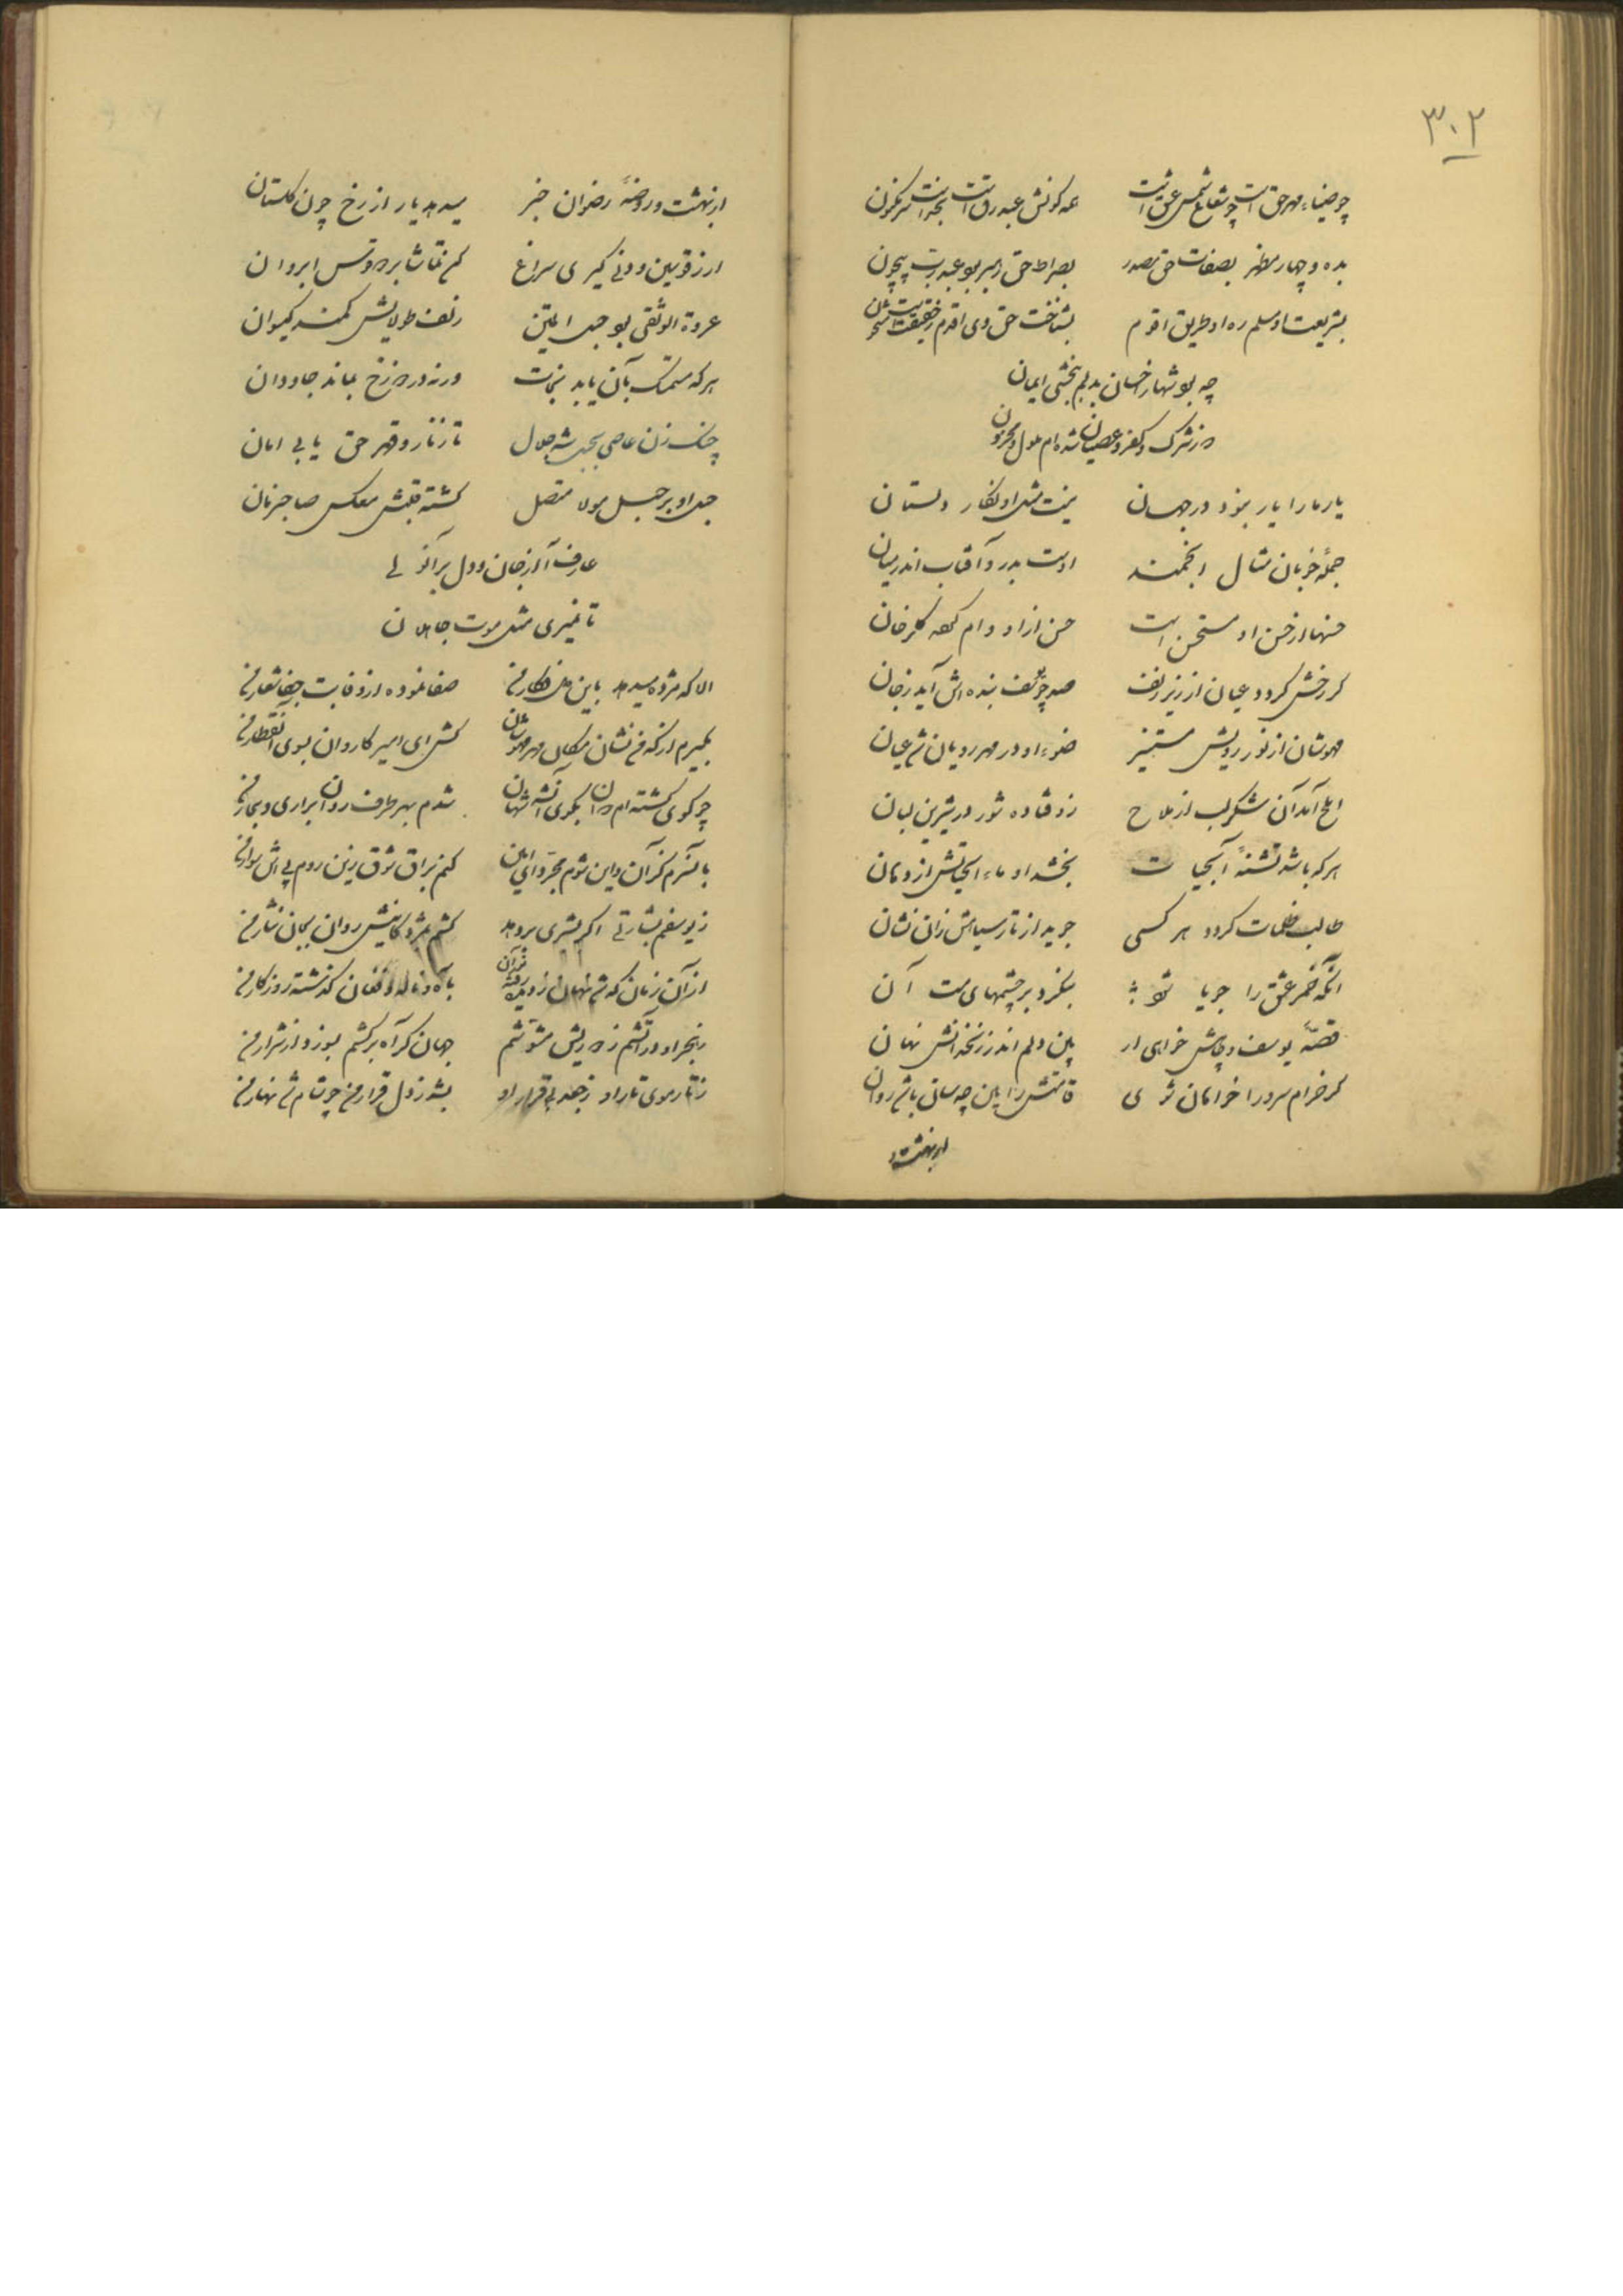 ۳۰۲
چو ضیاء مهر حق است چو شعاع شمس عشق است همه کونش عبد رق است بخدا نیت سرنگون
بده و چهار مظهر بصفات حق مصدر بصراط حق رهبر بود عبد رب بیچون
بشریعت او سلم ره او طریق اقوم بشناخت حق وی اقدم
چه بود شها ز احسان بدلم بخشی ایمان
که ز شرک و کفر و عصیان شده ام ملول و محزون
یار ما را یار نبود در جهان نیست مثل او نگار دلستان
جمله خوبان مثال انجمند اوست بدر و آفتاب اندر میان
حسنها از حسن او مستحسن است حسن از او وام کرده گلرخان
گر رخش گردد عیان از زیر زلف صد چو یوسف بنده اش آید ز جان
مهوشان از نور رویش مستنیر ضوء او در مهر رویان شد عیان
املح آمد آن شکر لب از ملاح زو فتاده شور در شیرین لبان
هر که باشد تشنهٔ آبحیات بخشد او ماء الحیاتش از دهان
طالب ظلمات گردد هر کسی جوید از تار سیاهش زان نشان
آنکه خمر عشق را جویا شود بنگرد بر چشمهای مست آن
قصهٔ یوسف و چاهش خواهی ار بین دلم اندر زنخدانش نهان
گر خرام سرو را خواهان شوی قامتش را بین چه سان باشد روان
از بهشت و
از بهشت و روضهٔ رضوان خبر میدهد یار از رخ چون گلستان
ار ز قوسین و دنی گیری سراغ کن تماشا بر دو قوس ابروان
عروة الوثقی بود حبل المتین زلف طولایش کمند گیسوان
هر که مستمسک بآن یابد نجات ورنه در دوزخ بماند جاودان
چنگ زن عاصی بحبل شه جلال تا ز نار و قهر حق یابی امان
حبل او بر حبل مولا متصل گشته قلبش معکس صاحبزمان
عارف آ از جان و دل بر آن ولی
تا نمیری مثل موت جاهلان
الا که مژده میدهد باین دل فکار من صفا نموده از وفا بت جفا شعار من
بگیرم ار که من نشان مکان مهر مهوشان کشم ای امیر کاروان بسوی آن قطار من
چو گوی گشته ام دوان بکوی آن شه شهان شدم بهر طرف روان براری و بحار من
بآنسرم کز آن و این شوم مجرد ای امین کنم براق شوق زین روم پی اش سوار من
ز یوسفم بشارتی اگر بشری برو دهد کنم بمژدگانیش روان بجان نثار من
از آن زمان که شد نهان بآه و ناله و فغان گذشته روزگار من
ز هجر او در آتشم ز دوریش مشوشم جهان گر آه برکشم بسوزد از شرار من
ز تار موی تار او ز جعد بی قرار او بشد ز دل قرار من چو شام شد نهار من